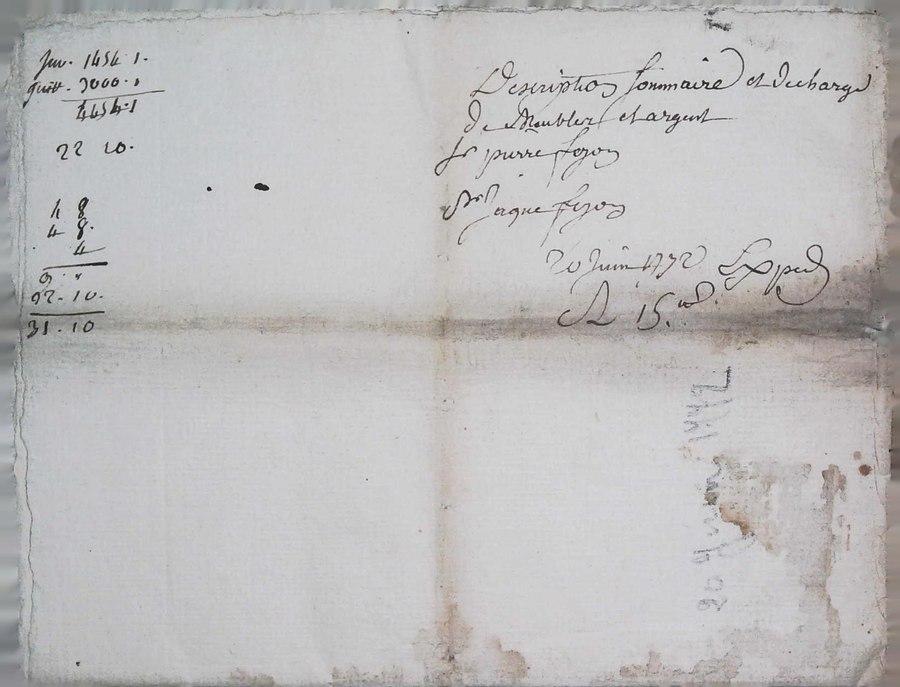 Inv. 1454 · 1 ·
quitt. 3000 · 1
4454 · 1
22 10 ·
4 8
4 8 ·
4
9 · "
22 · 10 ·
31 · 10
Description sommaire et decharge
de Meubles et argent
Sr pierre
Sr Jaque
20 Juin 1772 Exped
15